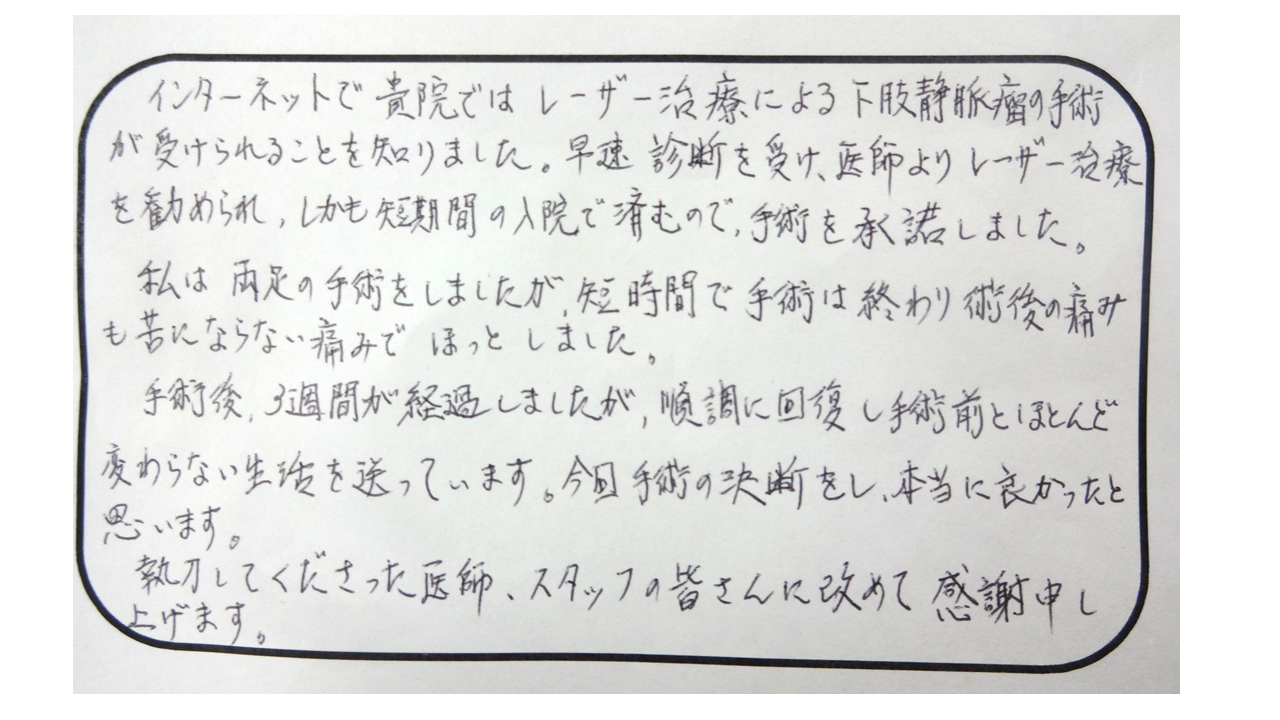 インターネットで貴院ではレーザー治療による下肢静脈瘤の手術
が受けられることを知りました。早速診断を受け、医師よりレーザー治療
を勧められ、しかも短期間の入院で済むので、手術を承諾しました。
私は両足の手術をしましたが、短時間で手術は終わり術後の痛み
も苦にならない痛みでほっとしました。
手術後、3週間が経過しましたが、順調に回復し手術前とほとんど
変わらない生活を送っています。今回手術の決断をし、本当に良かったと
思います。
執刀してくださった医師、スタッフの皆さんに改めて感謝申し
上げます。